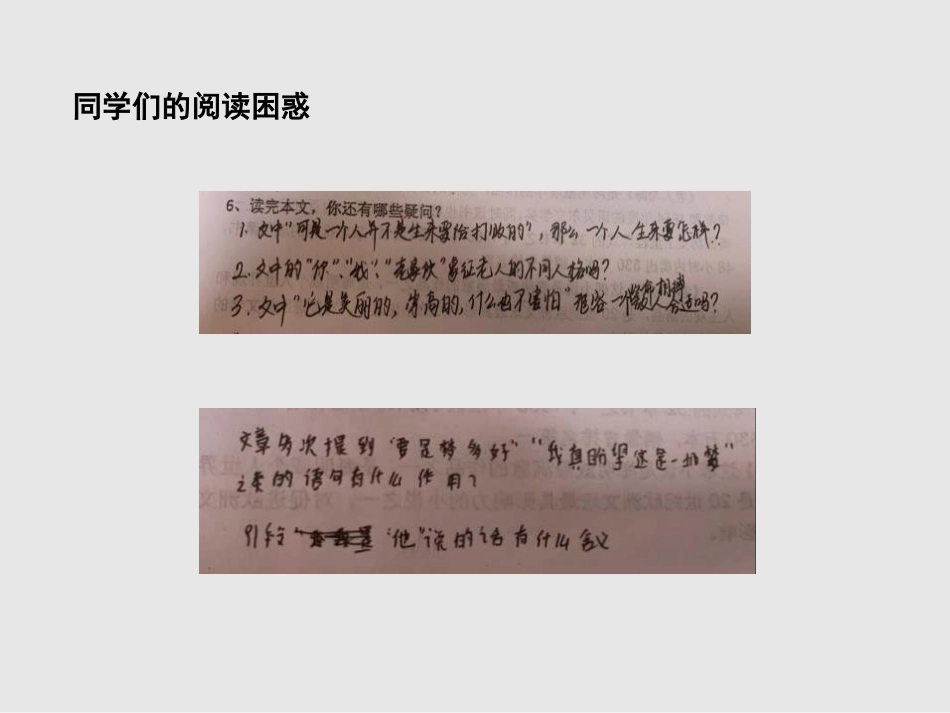 同学们的阅读困惑
6、读完本文，你还有哪些疑问？
1. 文中"可是一个人并不是生来要给打败的"，那么一个人生来要怎样？
2. 文中的"你"、"我"、"老家伙"象征老人的不同人格吗？
3. 文中"它是美丽的，崇高的，什么也不害怕"形容一个 敌人合适吗？
文章多次提到"要是梦多好""我真盼望这是一场梦"
之类的语句有什么作用？
引符 "他"说的话有什么含义